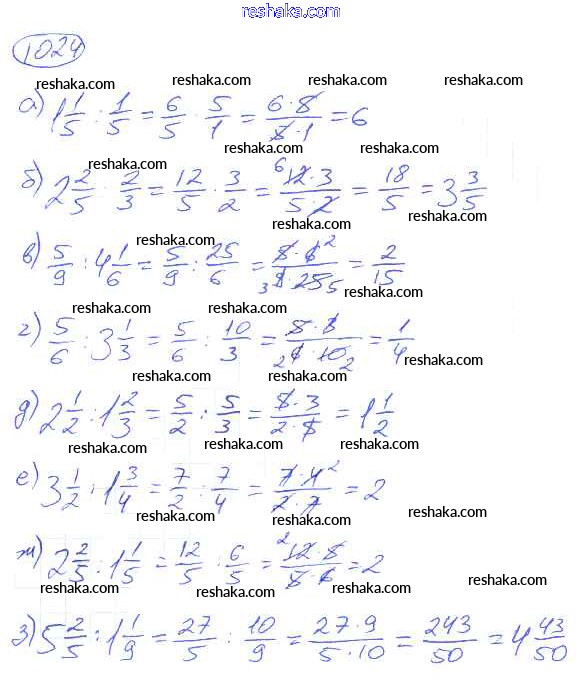 reshaka.com
1024
reshaka.com reshaka.com reshaka.com reshaka.com
а) 1 1/5 : 1/5 = 6/5 · 5/1 = 6·5/5·1 = 6
reshaka.com reshaka.com
reshaka.com
б) 2 2/5 : 2/3 = 12/5 · 3/2 = 6 12·3/5·2 = 18/5 = 3 3/5
reshaka.com
reshaka.com reshaka.com
reshaka.com
в) 5/9 : 4 1/6 = 5/9 : 25/6 = 5·6 2/3 9·25 5 = 2/15
reshaka.com
reshaka.com reshaka.com
г) 5/6 : 3 1/3 = 5/6 : 10/3 = 5·3/2 6·10 2 = 1/4
reshaka.com
reshaka.com reshaka.com
д) 2 1/2 : 1 2/3 = 5/2 : 5/3 = 5·3/2·5 = 1 1/2
reshaka.com reshaka.com
е) 3 1/2 : 1 3/4 = 7/2 : 7/4 = 7·4 2/2·7 = 2
reshaka.com reshaka.com reshaka.com
ж) 2 2/5 : 1 1/5 = 12/5 : 6/5 = 2 12·5/5·6 = 2
reshaka.com reshaka.com reshaka.com
reshaka.com
з) 5 2/5 : 1 1/9 = 27/5 : 10/9 = 27·9/5·10 = 243/50 = 4 43/50
reshaka.com reshaka.com reshaka.com